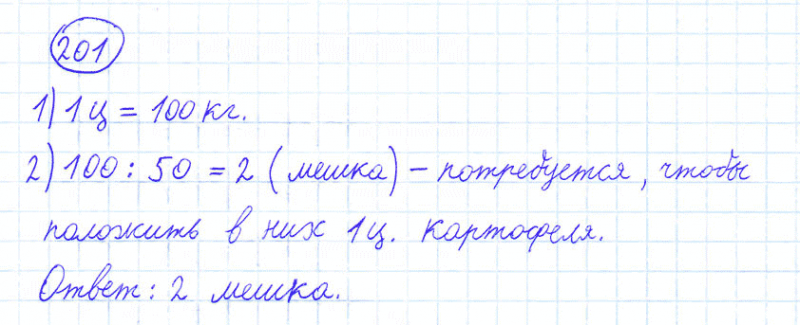 201
1) 1 ц = 100 кг.
2) 100 : 50 = 2 (мешка) – потребуется, чтобы
положить в них 1ц. картофеля.
Ответ: 2 мешка.